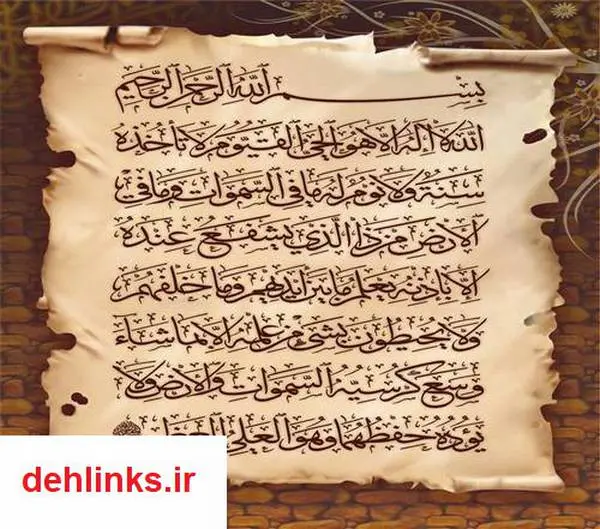 بسم الله الرحمن الرحيم
الله لا إله إلا هو الحي القيوم لا تأخذه
سنة ولا نوم له ما في السموات وما في
الأرض من ذا الذي يشفع عنده
إلا بإذنه يعلم ما بين أيديهم وما خلفهم
ولا يحيطون بشيء من علمه إلا بما شاء
وسع كرسيه السموات والأرض ولا
يؤده حفظهما وهو العلي العظيم
dehlinks.ir